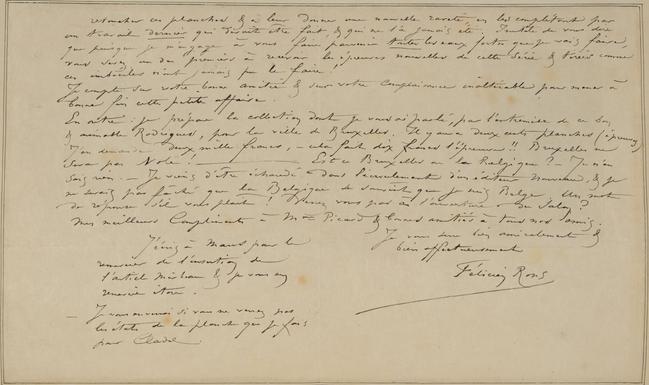 retoucher ces planches & à leur donner une nouvelle rareté en les complétant par
un travail dernier qui devait être fait, & qui ne l'a jamais été. Inutile de vous dire
que puisque je m'engage à vous faire parvenir toutes les eaux fortes que je vais faire,
vous serez un des premiers à recevoir les épreuves nouvelles de cette Série & tirées comme
ces imbéciles n'ont jamais pu le faire!
Je compte sur votre bonne amitié & sur votre complaisance inaltérable pour mener à
bonne fin cette petite affaire.
En outre: je prépare la collection dont je vous ai parlé, par l'entremise de ce bon
& aimable Rodrigues, pour la ville de Bruxelles. Il y aura deux cents planches (épreuves)
J'en demande deux mille francs, – cela fait dix francs l'épreuve!! Bruxelles ne
sera pas Volé! – Est-ce Bruxelles ou la Belgique? – Je n'en
sais rien. – Je viens d'être échaudé dans l'écroulement d'un éditeur nouveau, & je
ne serais pas fâché que la Belgique se souvint que je suis Belge. Un mot
de réponse s'il vous plait! Venez vous pas à l'ouverture du Salon?
Mes meilleurs Compliments à Mme Picard & bonnes amitiés à tous nos amis.
Je vous serre bien amicalement &
bien affectueusement
Félicien Rops
J'écris à Maus pour le
remercier de l'insertion de
l'article Mirbeau & je vous en
remercie itou.
– Je vous enverrai si vous ne venez pas
les états de la planche que je fais
pour Cladel